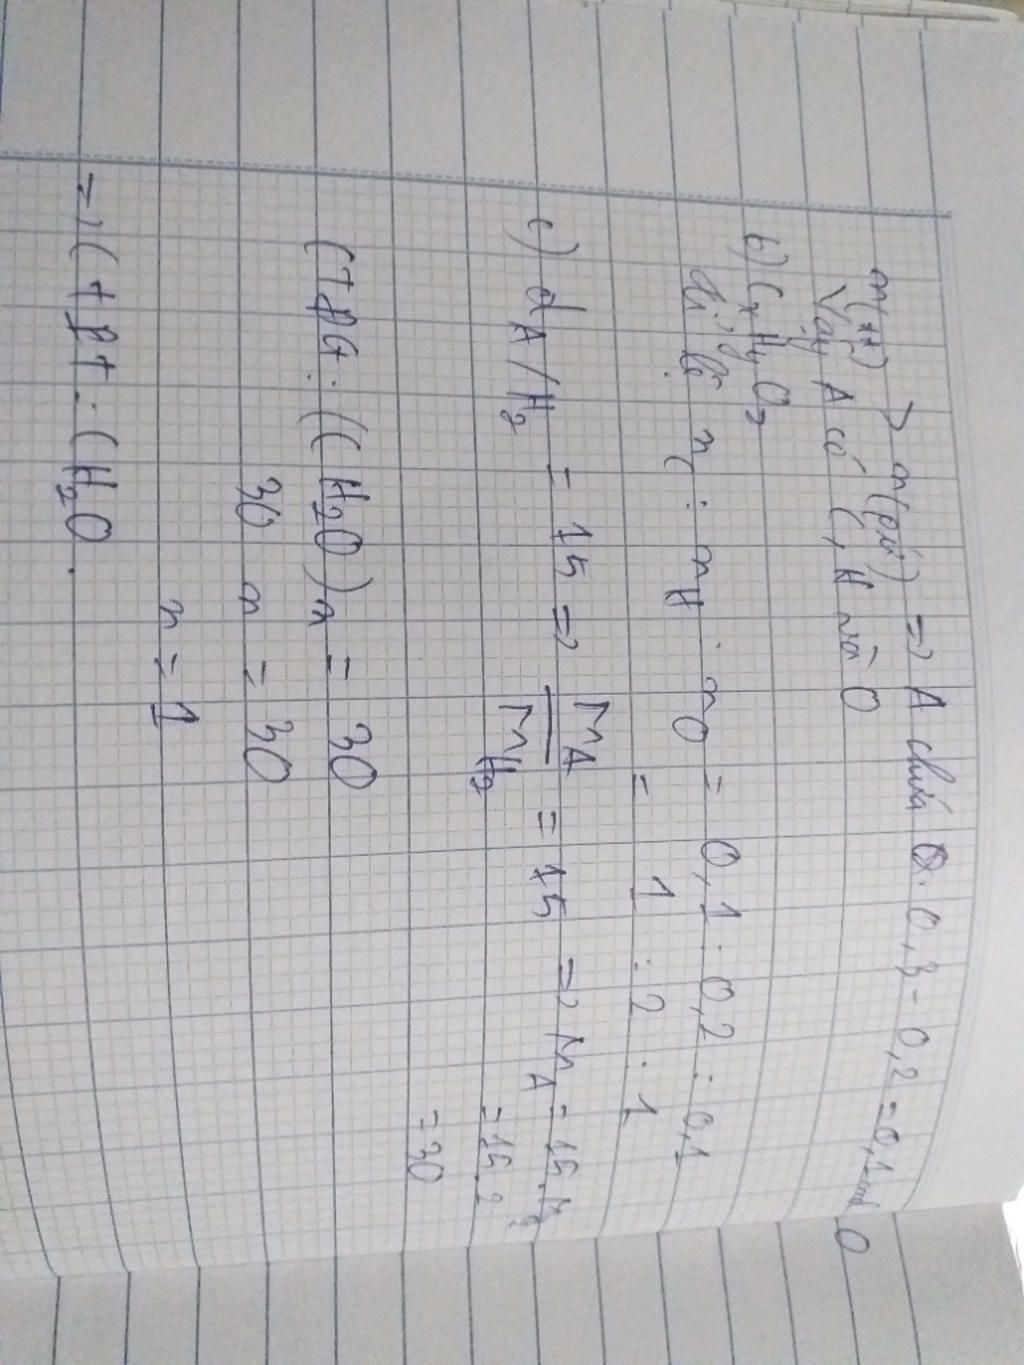 n(tt) > n(pứ) => A chứa O. 0,3 - 0,2 = 0,1 mol O
Vậy A có C, H và O
b) CxHyOz
Tỉ lệ nC : nH : nO = 0,1 : 0,2 : 0,1
= 1 : 2 : 1
c) dA/H2 = 15 => MA/MH2 = 15 => MA = 15.MH2
= 15.2
= 30
CTPG: (CH2O)n = 30
30 n = 30
n = 1
=> CTPT: CH2O.